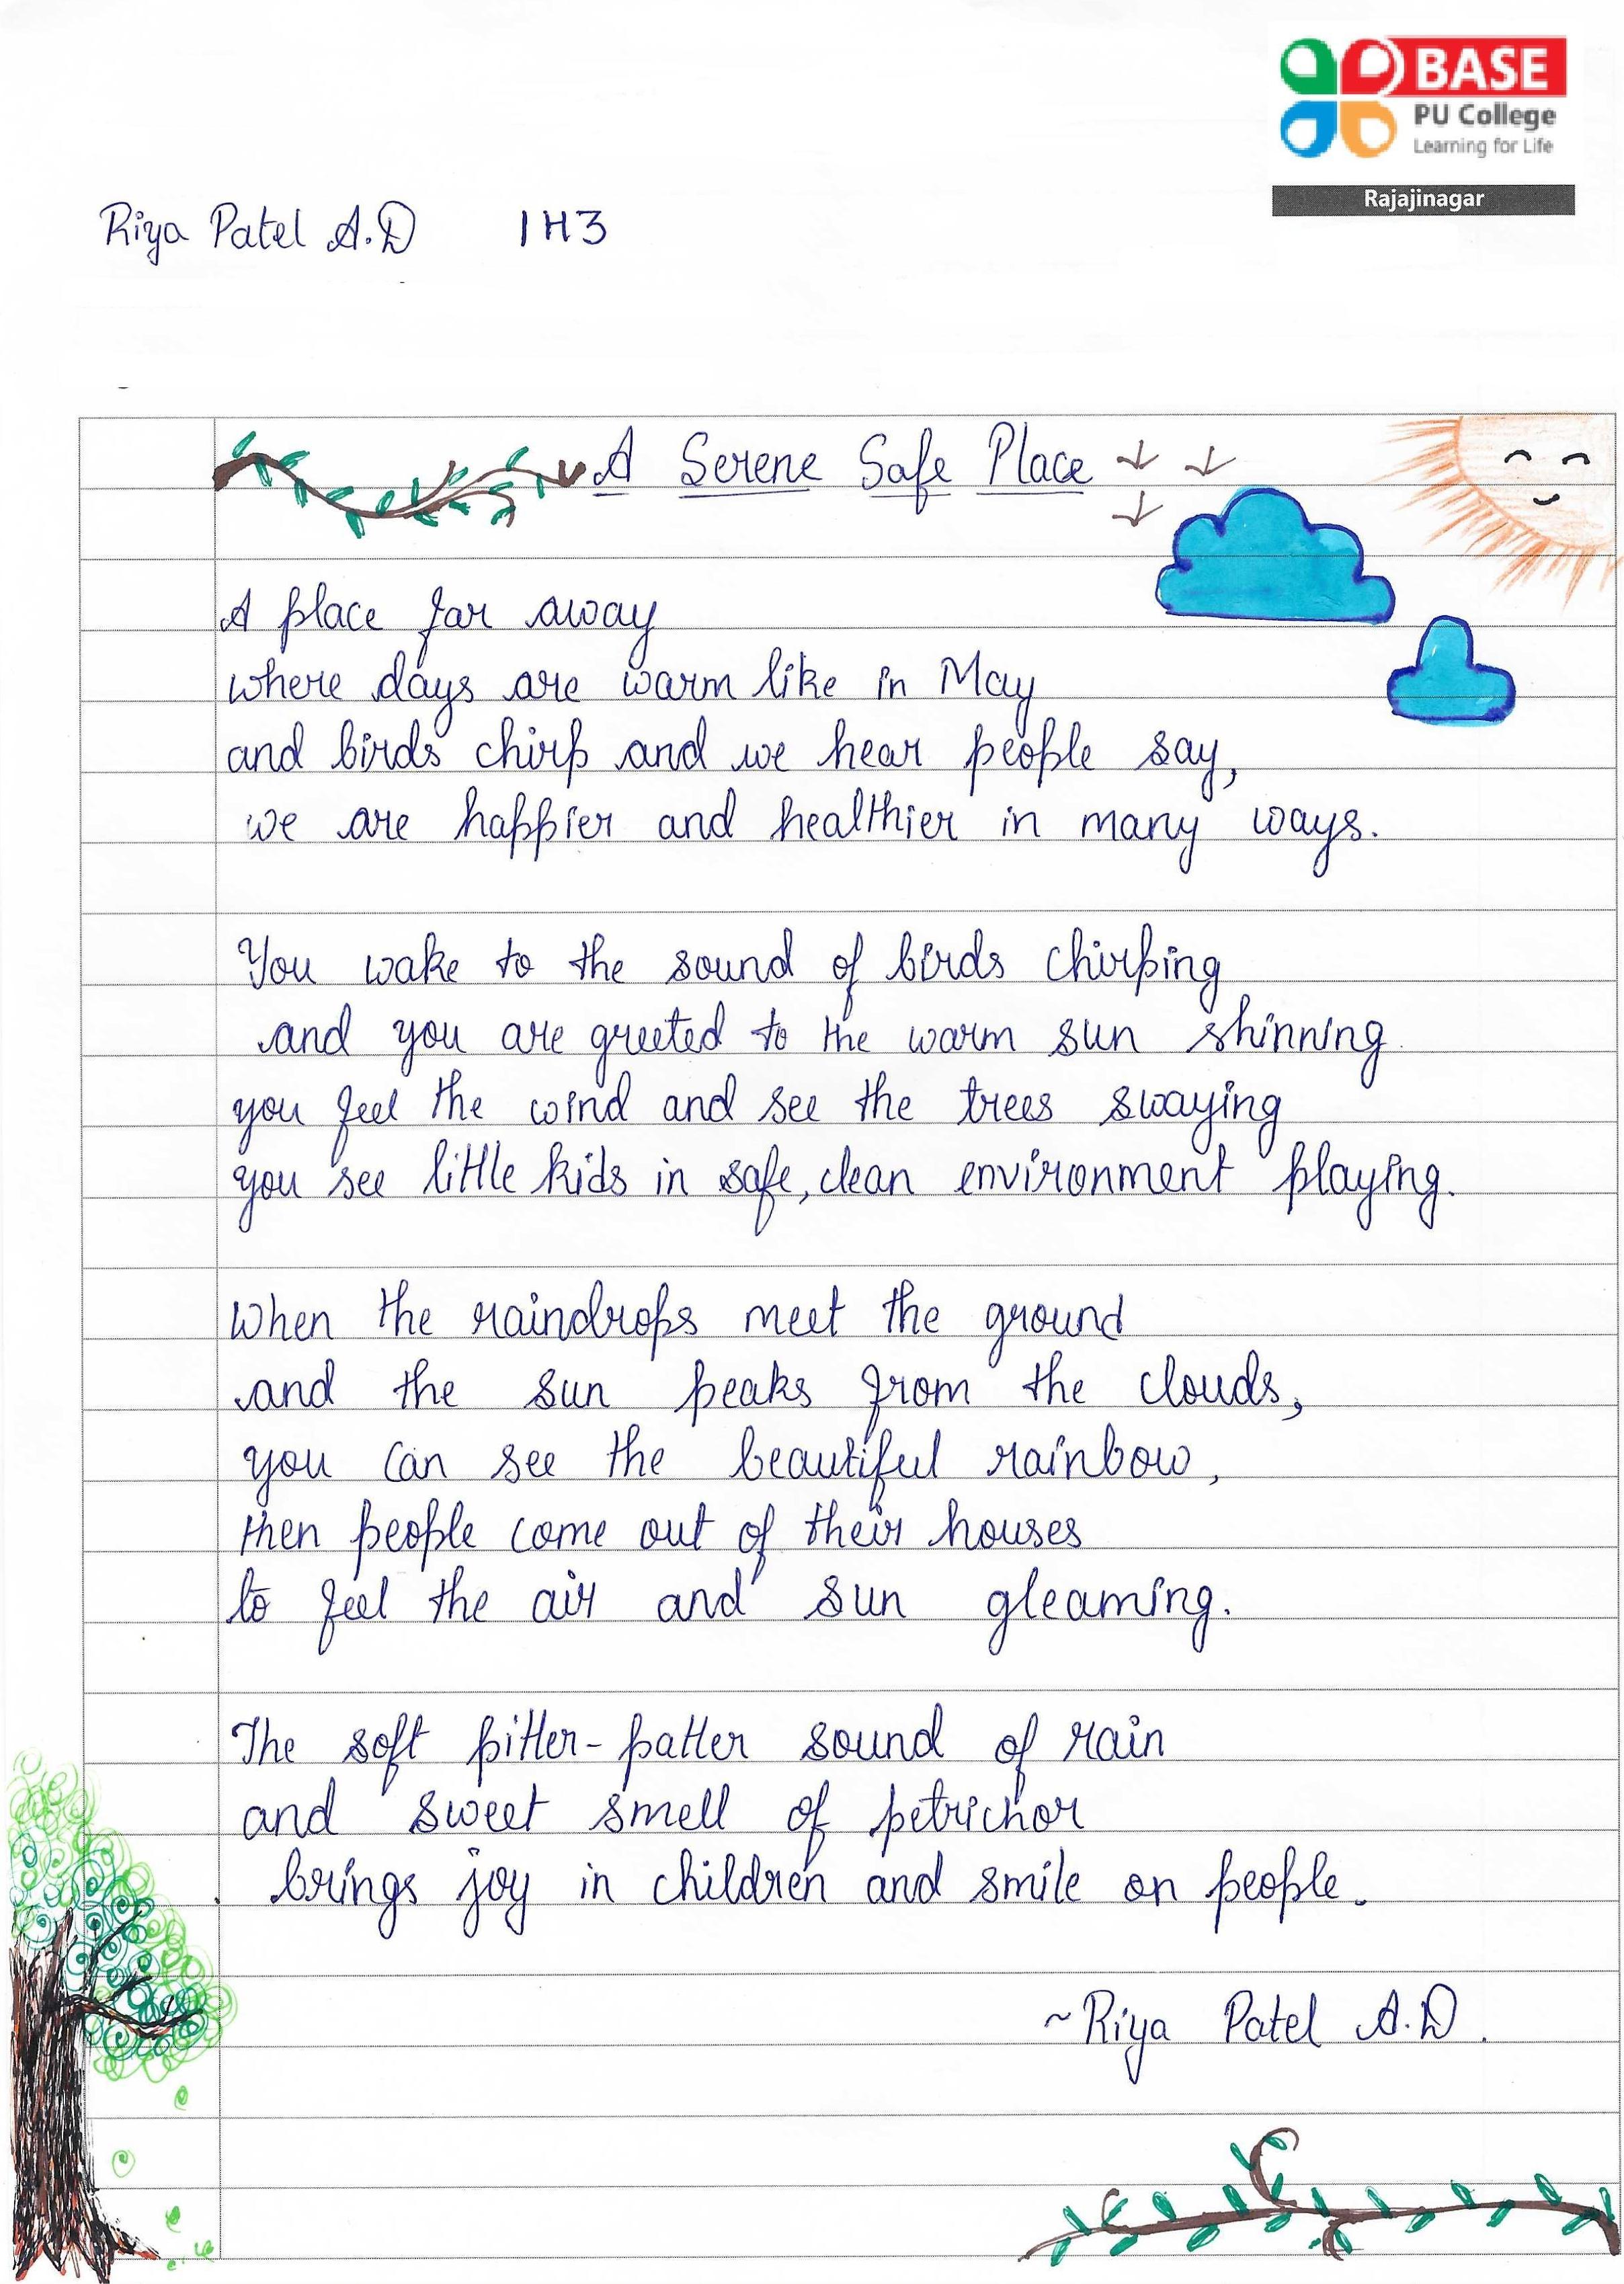 BASE
PU College
Learning for Life
Rajajinagar
Riya Patel A.D 1H3
A Serene Safe Place
A place far away
where days are warm like in May
and birds chirp and we hear people say,
we are happier and healthier in many ways.
You wake to the sound of birds chirping
and you are greeted to the warm sun shinning
you feel the wind and see the trees swaying
you see little kids in safe, clean environment playing.
When the raindrops meet the ground
and the sun peaks from the clouds,
you can see the beautiful rainbow,
then people come out of their houses
to feel the air and sun gleaming.
The soft pitter-patter sound of rain
and sweet smell of petrichor
brings joy in children and smile on people.
~Riya Patel A.D.